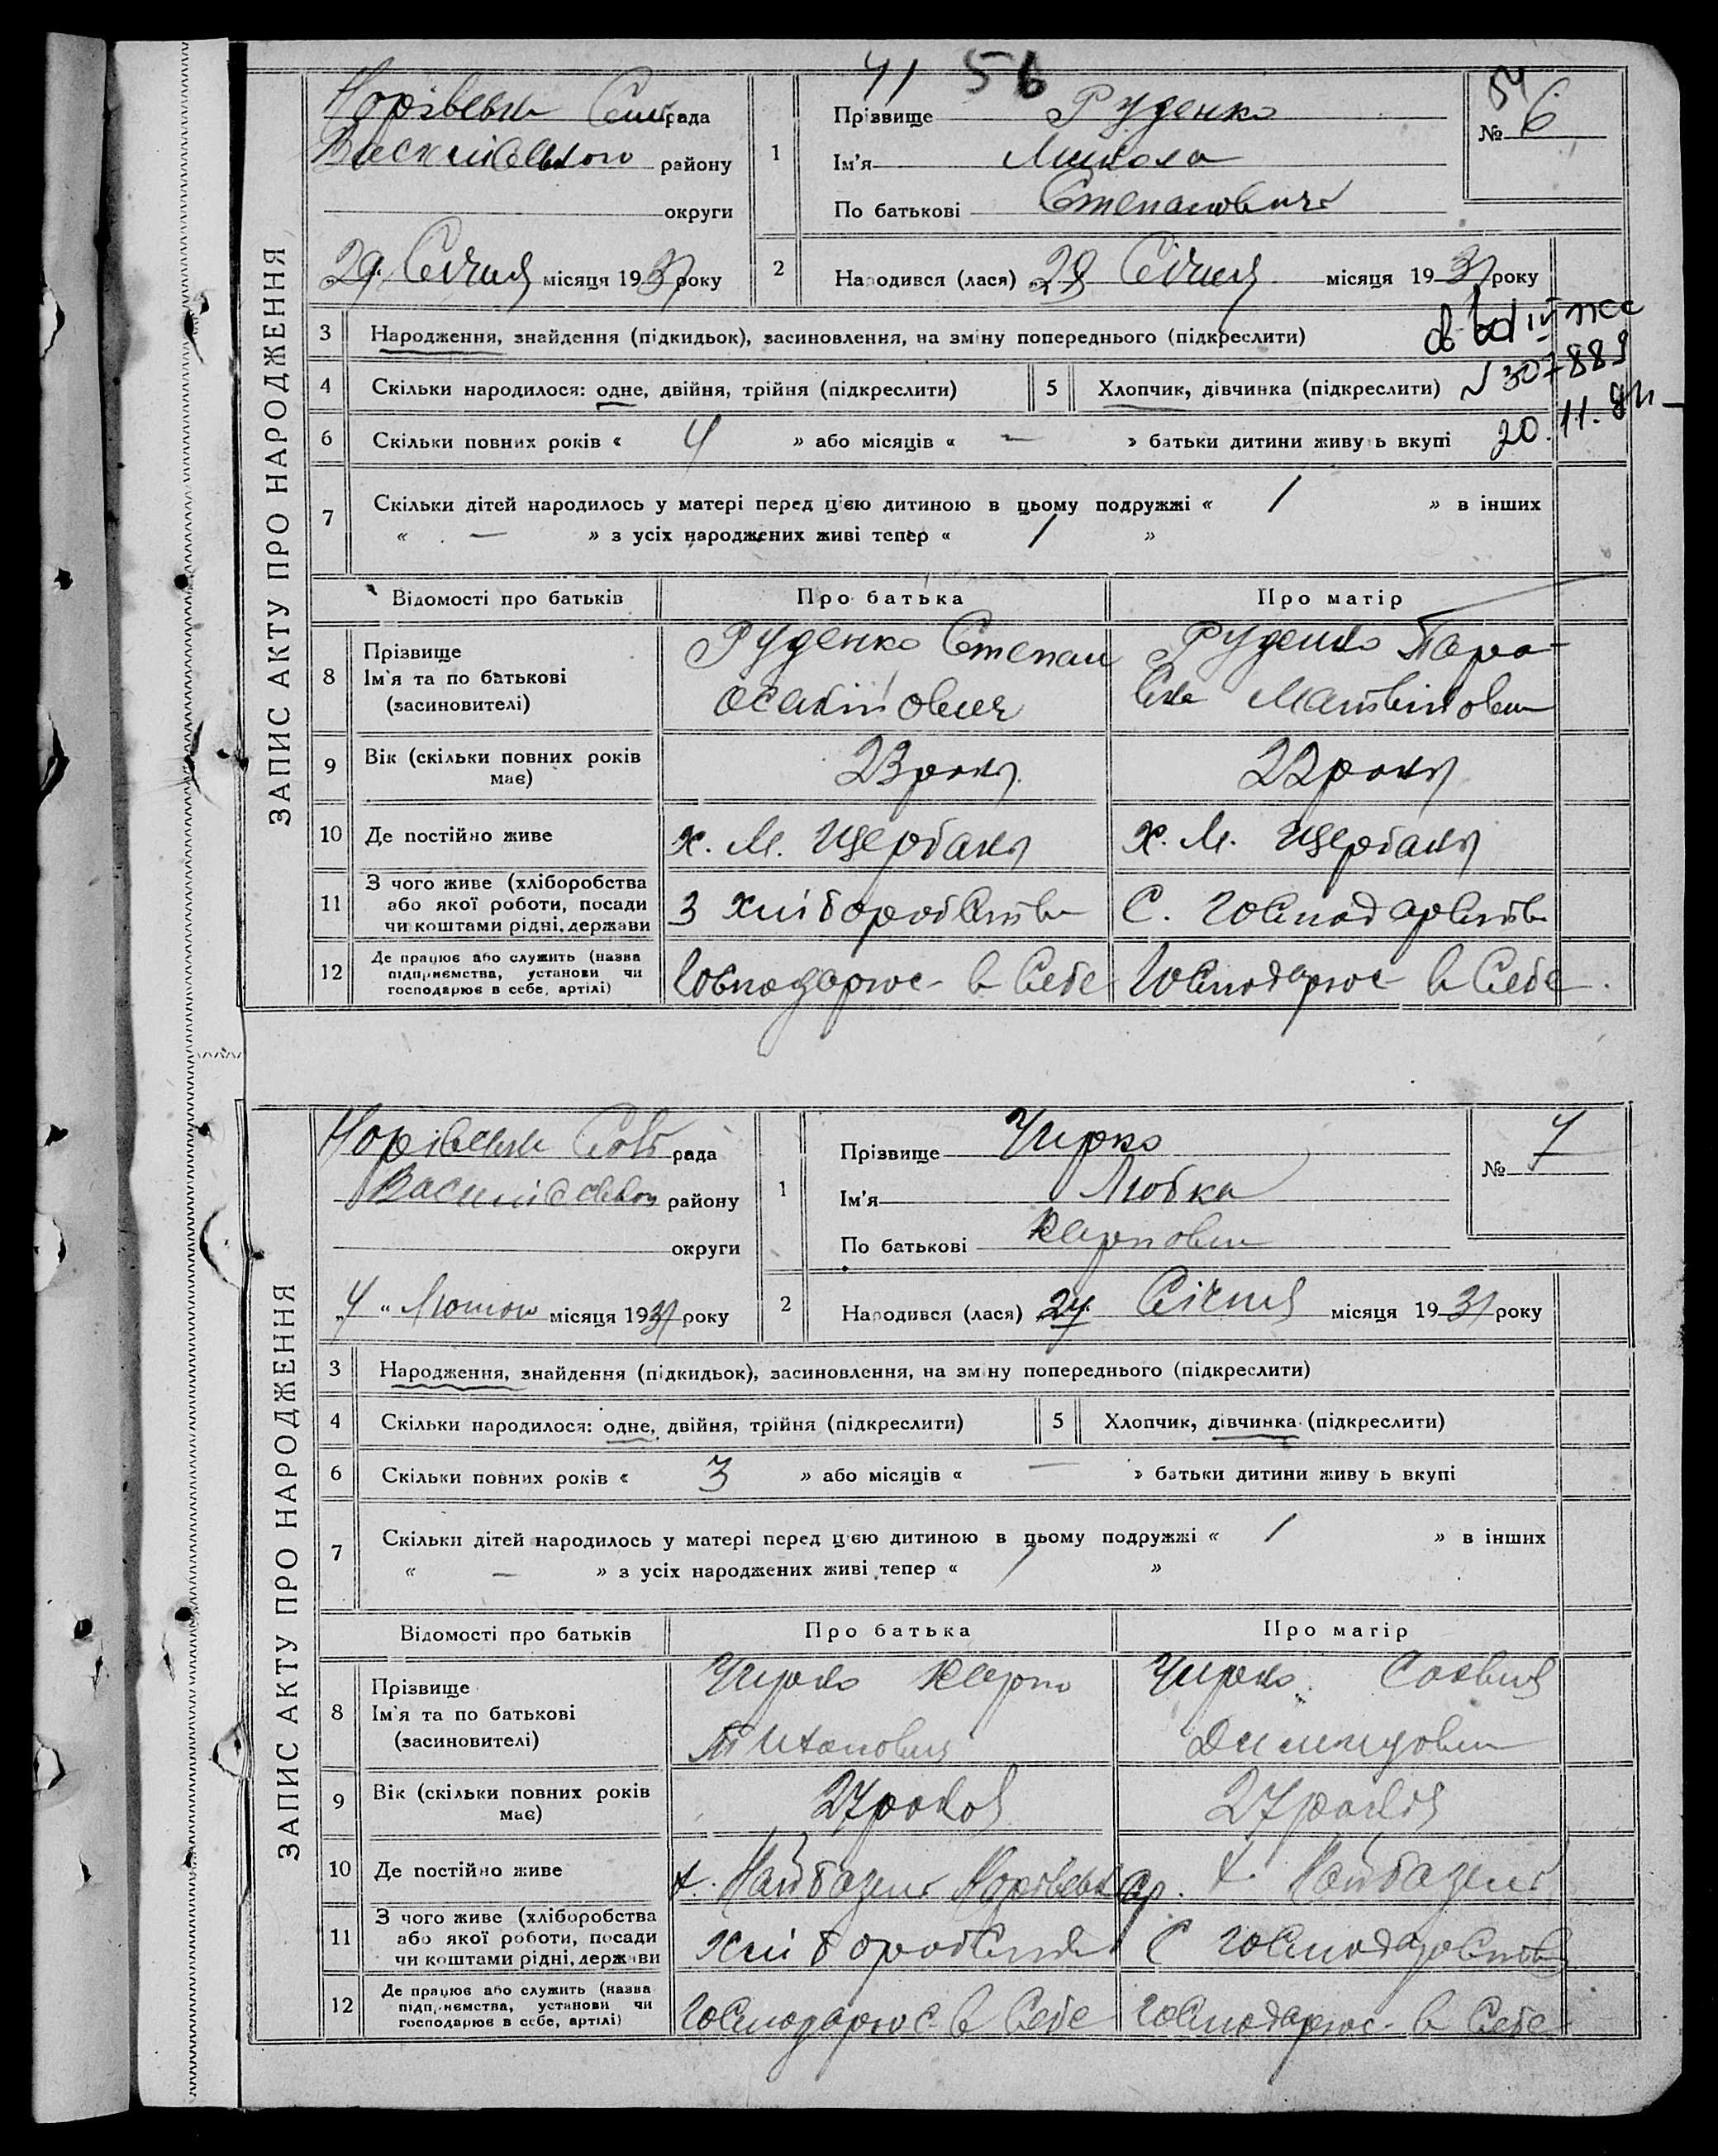 41 56
ЗАПИС АКТУ ПРО НАРОДЖЕННЯ
рада
району
округи
29 Січня місяця 1931 року
1
Прізвище Руденко
Ім'я Микола
По батькові Степанович
54
№ 6
2
Народився (лася) 28 Січня місяця 1931 року
3 Народження, знайдення (підкидьок), засиновлення, на зміну попереднього (підкреслити)
4 Скільки народилося: одне, двійня, трійня (підкреслити)
5 Хлопчик, дівчинка (підкреслити)
20.11.
6 Скільки повних років « 4 » або місяців « — » батьки дитини живуть вкупі
7 Скільки дітей народилось у матері перед цією дитиною в цьому подружжі « 1 » в інших
« — » з усіх народжених живі тепер « 1 »
Відомості про батьків Про батька Про матір
8 Прізвище Ім'я та по батькові (засиновителі)
Руденко Степан
Руденко Пара-
9 Вік (скільки повних років має) 23 роки 22 роки
10 Де постійно живе х. М. Щербаки х. М. Щербаки
11 З чого живе (хліборобства або якої роботи, посади чи коштами рідні, держави
З хліборобства С. господарства
12 Де працює або служить (назва підприємства, установи чи господарює в себе, артілі)
Господарює в себе Господарює в себе
ЗАПИС АКТУ ПРО НАРОДЖЕННЯ
рада
району
округи
„4" Лютого місяця 1931 року
1
Прізвище Чирко
Ім'я Любка
По батькові Карповна
№ 7
2
Народився (лася) 24 Січня місяця 1931 року
3 Народження, знайдення (підкидьок), засиновлення, на зміну попереднього (підкреслити)
4 Скільки народилося: одне, двійня, трійня (підкреслити)
5 Хлопчик, дівчинка (підкреслити)
6 Скільки повних років « 3 » або місяців « — » батьки дитини живуть вкупі
7 Скільки дітей народилось у матері перед цією дитиною в цьому подружжі « 1 » в інших
« — » з усіх народжених живі тепер « 1 »
Відомості про батьків Про батька Про матір
8 Прізвище Ім'я та по батькові (засиновителі)
Чирко Карпо
Чирко
9 Вік (скільки повних років має) 27 років 27 років
10 Де постійно живе
11 З чого живе (хліборобства або якої роботи, посади чи коштами рідні, держави
хліборобства С господарства
12 Де працює або служить (назва підприємства, установи чи господарює в себе, артілі)
Господарює в себе Господарює в себе